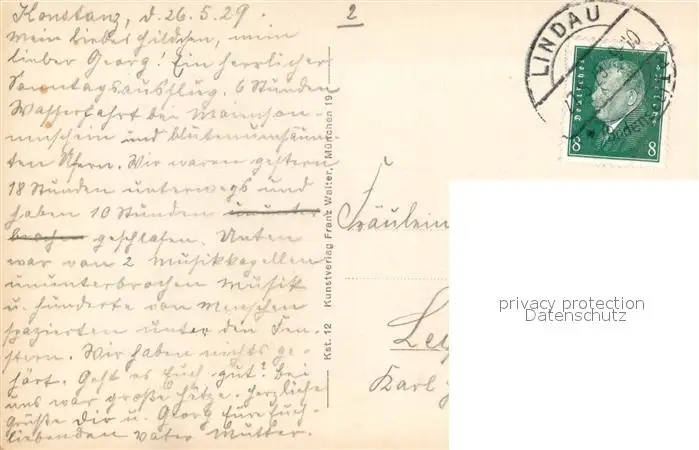 Konstanz, d. 26.5.29.
2
Mein liebes Hildchen, mein
lieber Georg! Ein herrlicher
Sonntagsausflug. 6 Stunden
Wasserfahrt bei Maienson-
nenschein und blütenumsäum-
ten Ufern. Wir waren gestern
18 Stunden unterwegs und
haben 10 Stunden ununter
brochen geschlafen. Unten
war von 2 Musikkapellen
ununterbrochen Musik
u. hunderte von Menschen
spazierten unter den Fen-
stern. Wir haben nichts ge-
hört. Geht es Euch gut? Bei
uns war große Hitze. Herzliche
Grüße Dir u. Georg Eure Euch
liebenden Vater Mutter.
Kst. 12 Kunstverlag Franz Walter, München 19
LINDAU
Deutsches Reich
8 8
Fräulein
Lei
Karl
privacy protection
Datenschutz